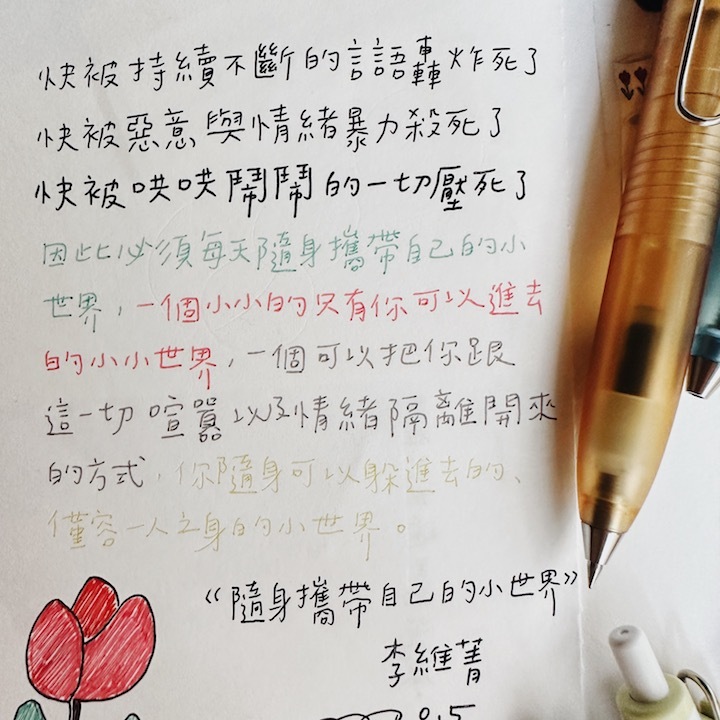 快被持續不斷的言語轟炸死了
快被惡意與情緒暴力殺死了
快被哄哄鬧鬧的一切壓死了
因此必須每天隨身攜帶自己的小
世界，一個小小的只有你可以進去
的小小世界，一個可以把你跟
這一切喧囂以及情緒隔離開來
的方式，你隨身可以躲進去的、
僅容一人之身的小世界。
《隨身攜帶自己的小世界》
李維菁
0.5